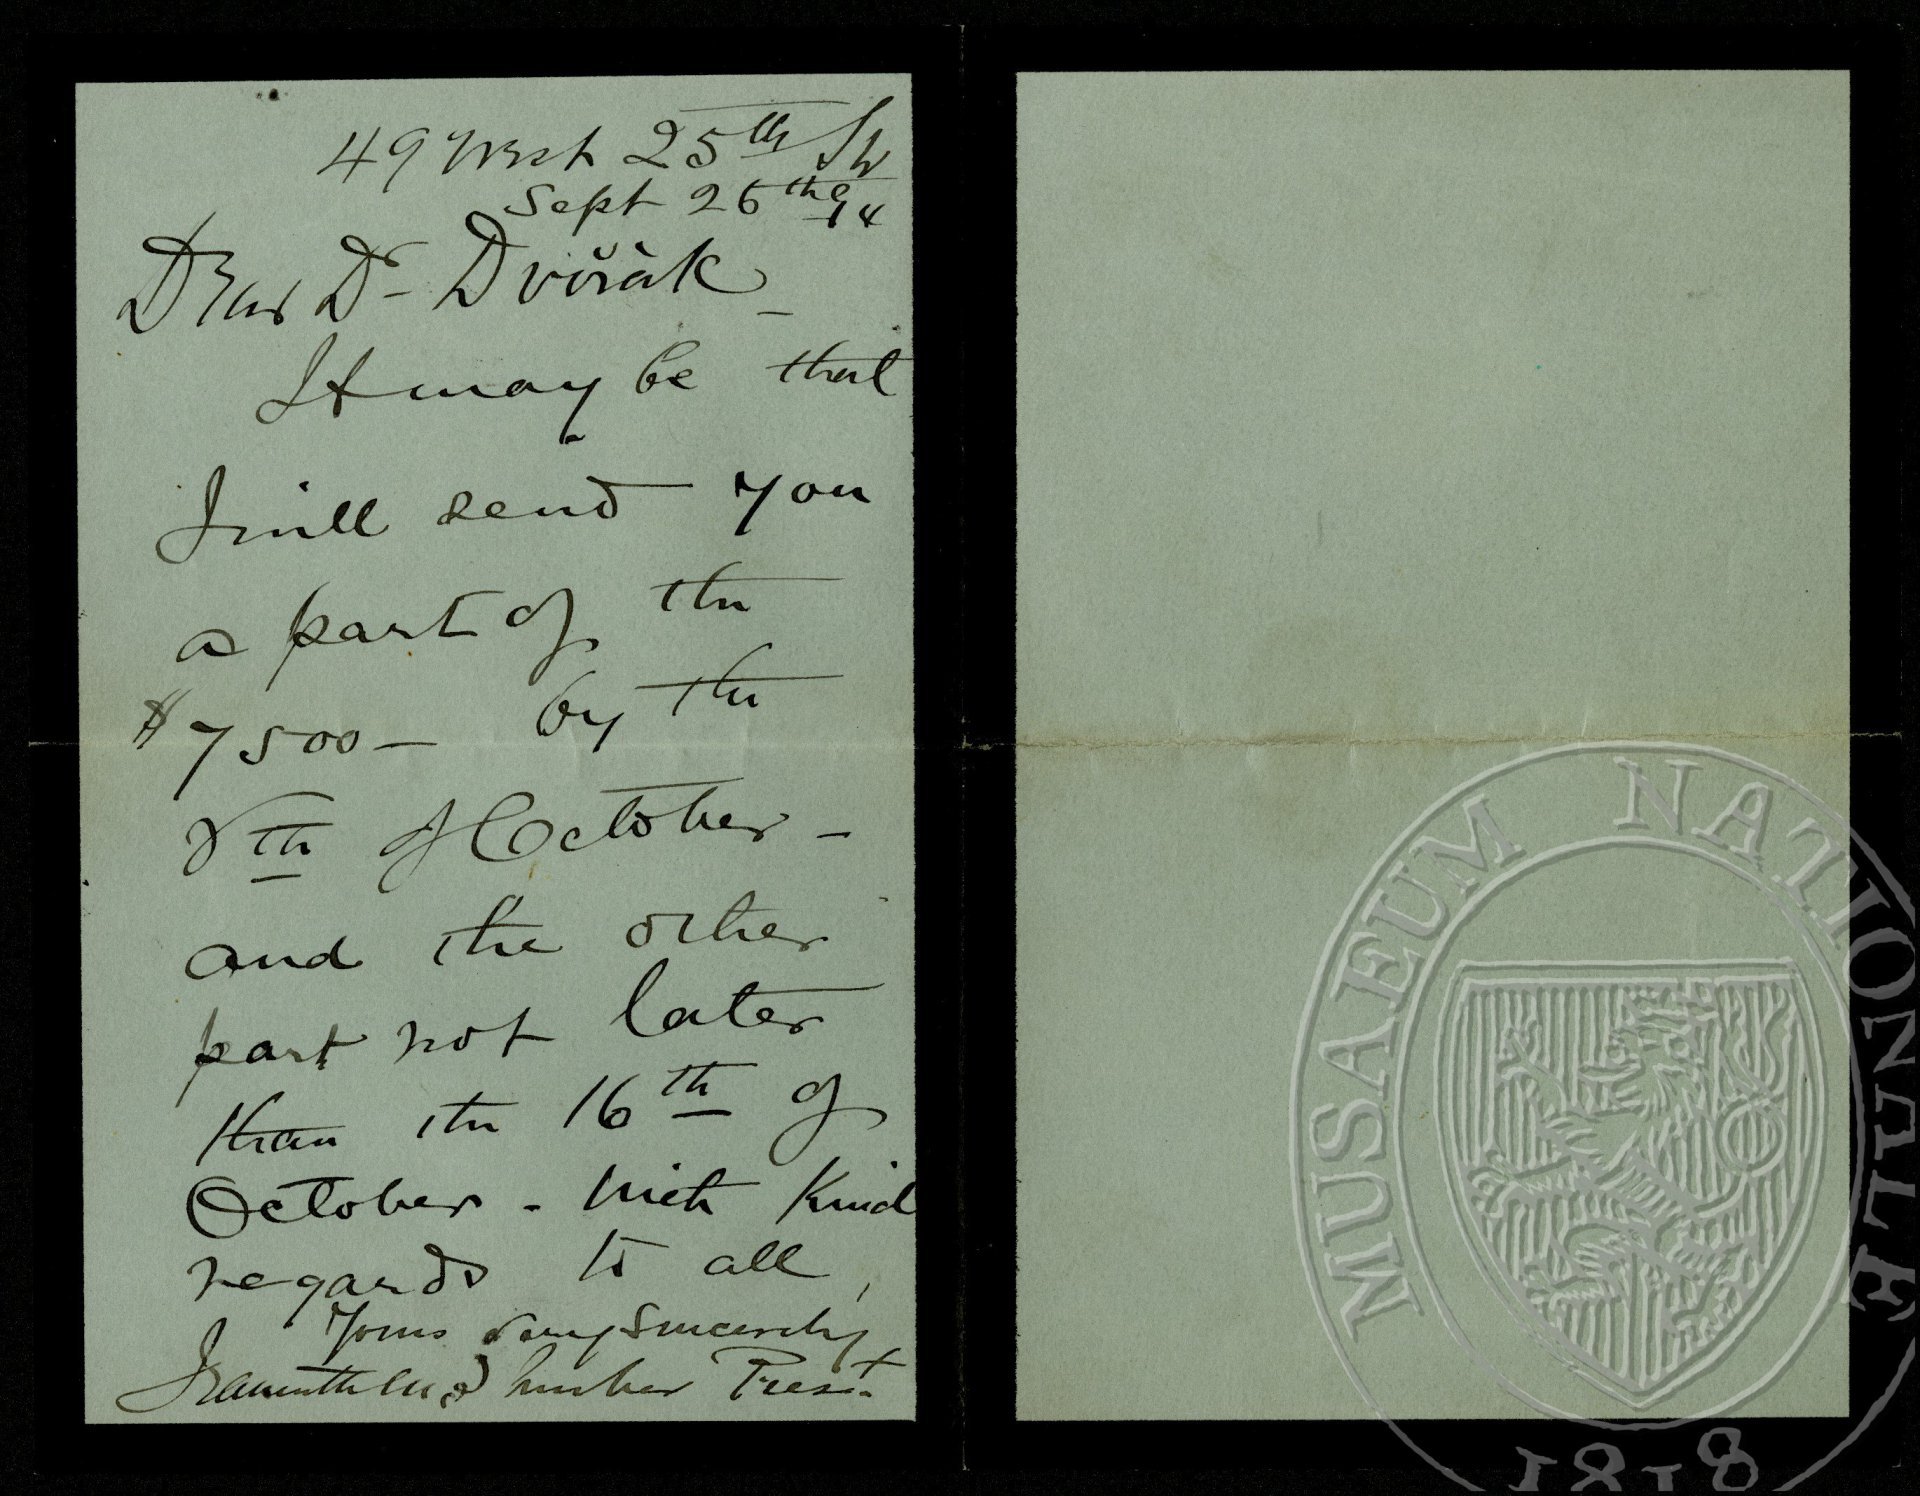 49 West 25th St
Sept 26th 94
Dear Dr Dvořàk –
It may be that
I will send you
a part of the
$7500 – by the
8th of October –
and the other
part not later
than the 16th of
October – With Kind
regards to all,
Yours very sincerely
Jeannette M. Thurber Prest.
MUSAEUM NATIONALE
1818